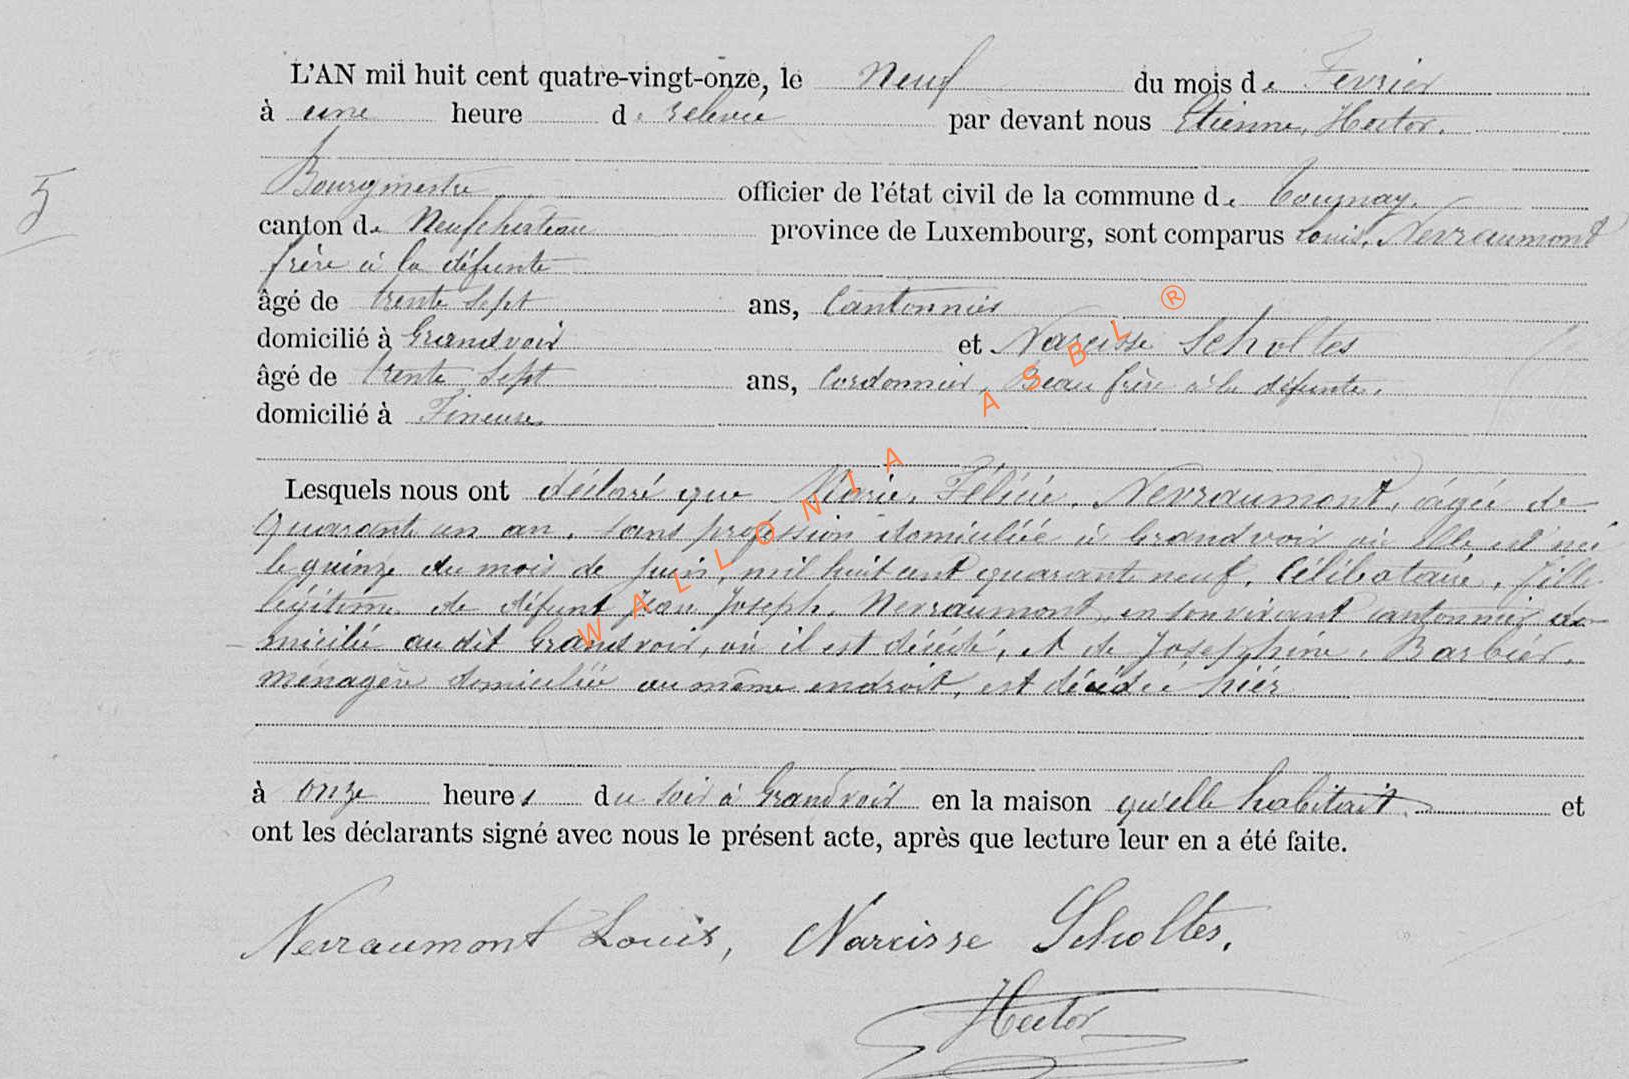 L'AN mil huit cent quatre-vingt-onze, le neuf du mois de Fevrier
à une heure de relevée par devant nous Etienne, Hector.
5
Bourgmestre officier de l'état civil de la commune de Tournay.
canton de Neufchateau province de Luxembourg, sont comparus Louis, Nevraumont
frère à la défunte
âgé de trente sept ans, Cantonnier
domicilié à Grandvoir et Narcisse Scholtes
âgé de trente sept ans, Cordonnier, Beau frère à la défunte.
domicilié à Fineuse
Lesquels nous ont déclaré que Marie, Félicie, Nevraumont, âgée de
quarante un an, sans profession domiciliée à Grandvoir où Elle est née
le quinze du mois de juin, mil huit cent quarante neuf. Célibataire, fille
légitime de défunt Jean Joseph, Nevraumont, en son vivant cantonnier do-
micilié au dit Grandvoir, où il est décédé, et de Joséphine, Barbier,
ménagère domiciliée au même endroit, est décédée hier
à onze heures du soir à Grandvoir en la maison qu'elle habitait. et
ont les déclarants signé avec nous le présent acte, après que lecture leur en a été faite.
Nevraumont Louis, Narcisse Scholtes.
Hector
WALLONIA ASBL ®